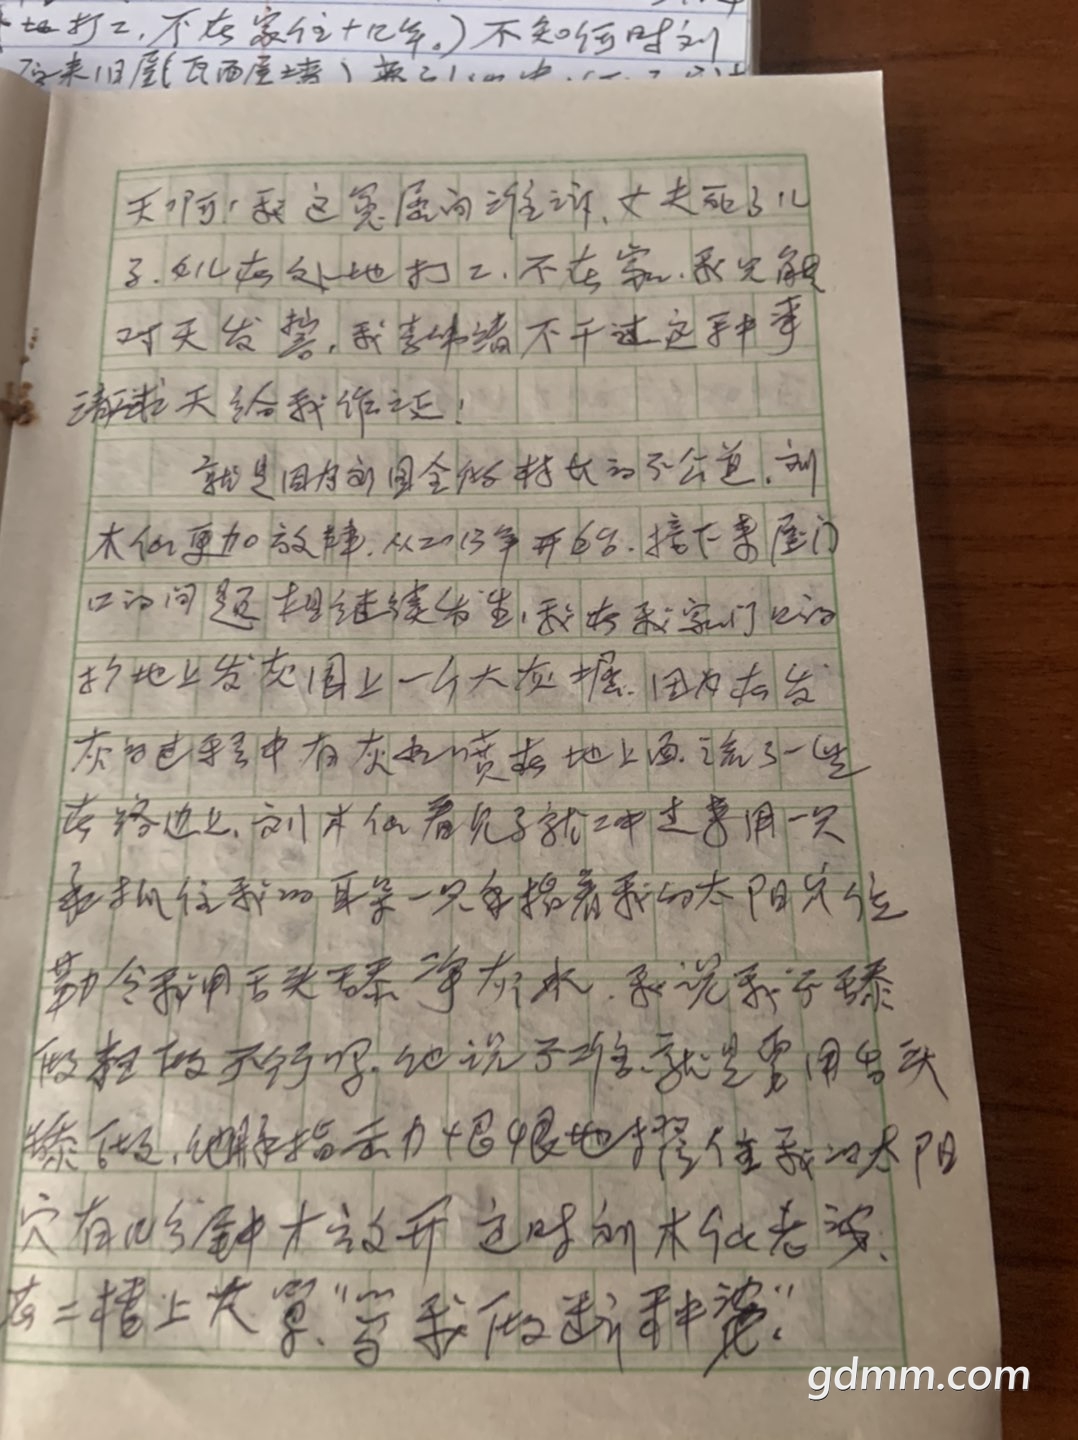 打工,不在家住十几年。)不知何时刘
天啊!我这冤屈向谁诉、丈夫死了儿
子、女儿在外地打工、不在家、我只能
对天发誓,我李伟绪不干过这种事
请求天给我作证!
就是因为刘国全做村长的不公道、刘
木仙更加放肆,从2013年开始、接下来屋门
口的问题相继续发生,我在我家门口的
地上发灰围上一个大灰堀、因为在发
灰的过程中有灰水喷在地上面流了一些
在路边上、刘木仙看见了就冲过来用一只
手抓住我的耳朵一只手揾着我的太阳穴位
勒令我用舌头舔净灰水、我说我不舔
做鞋做不行吗、他说不准、就是要用舌头
舔、他用指力恨恨地摁住我的太阳
穴有几分钟才放开这时刘木仙老婆、
在二楼上大骂、"骂我做断种婆"!
gdmm.com